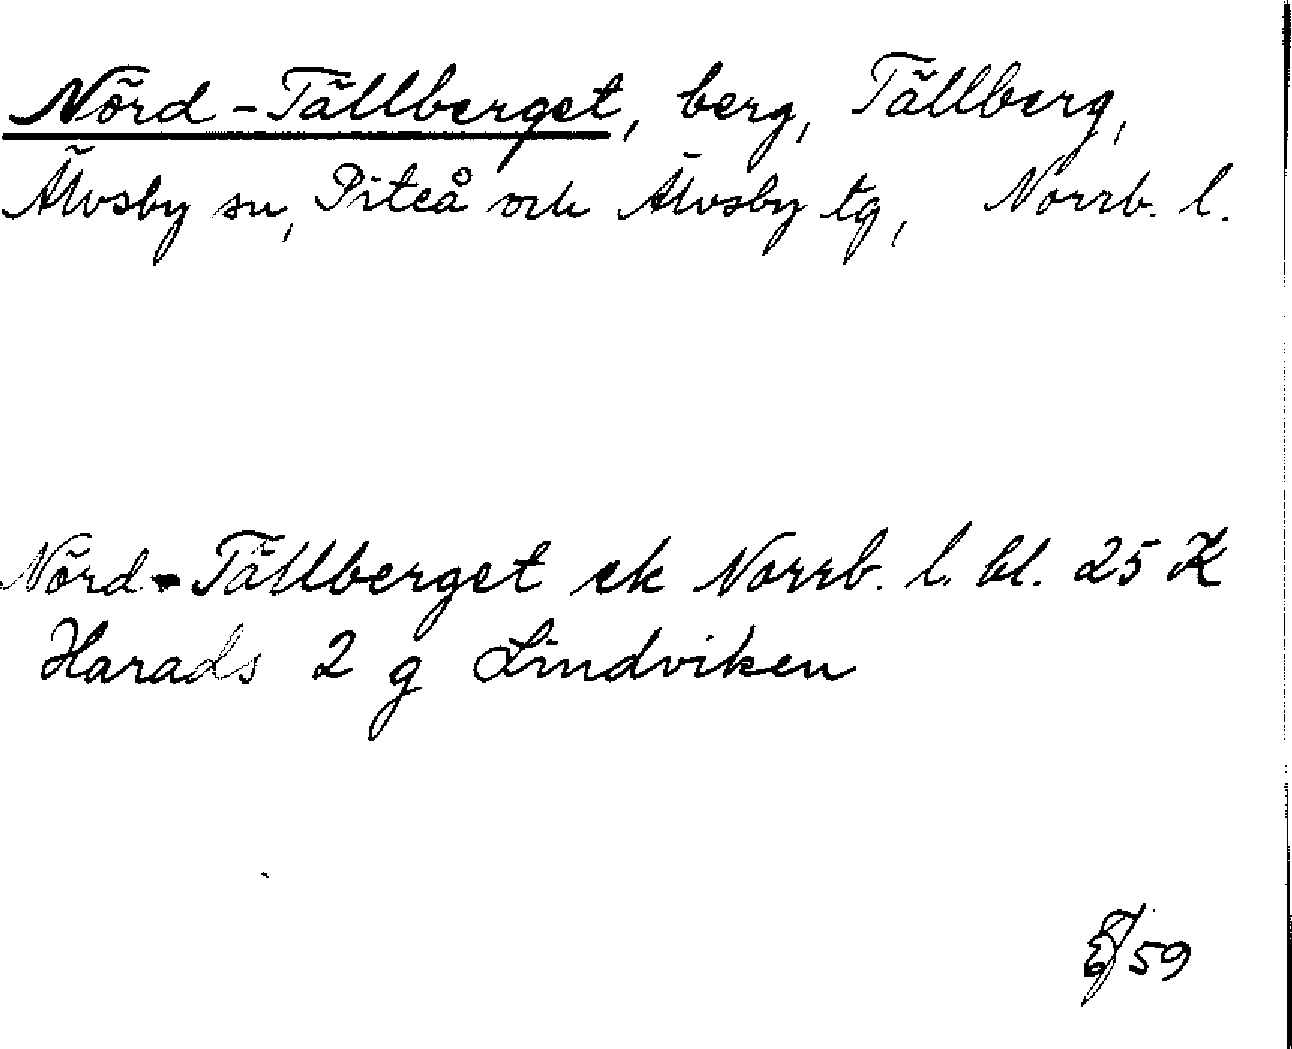 Nörd-Tällberget, berg, Tällberg,
Älvsby sn, Piteå och Älvsby tg, Norrb. l.
Nörd-Tällberget ek Norrb. l. bl. 25 K
Harads 2 g Lindviken
/59